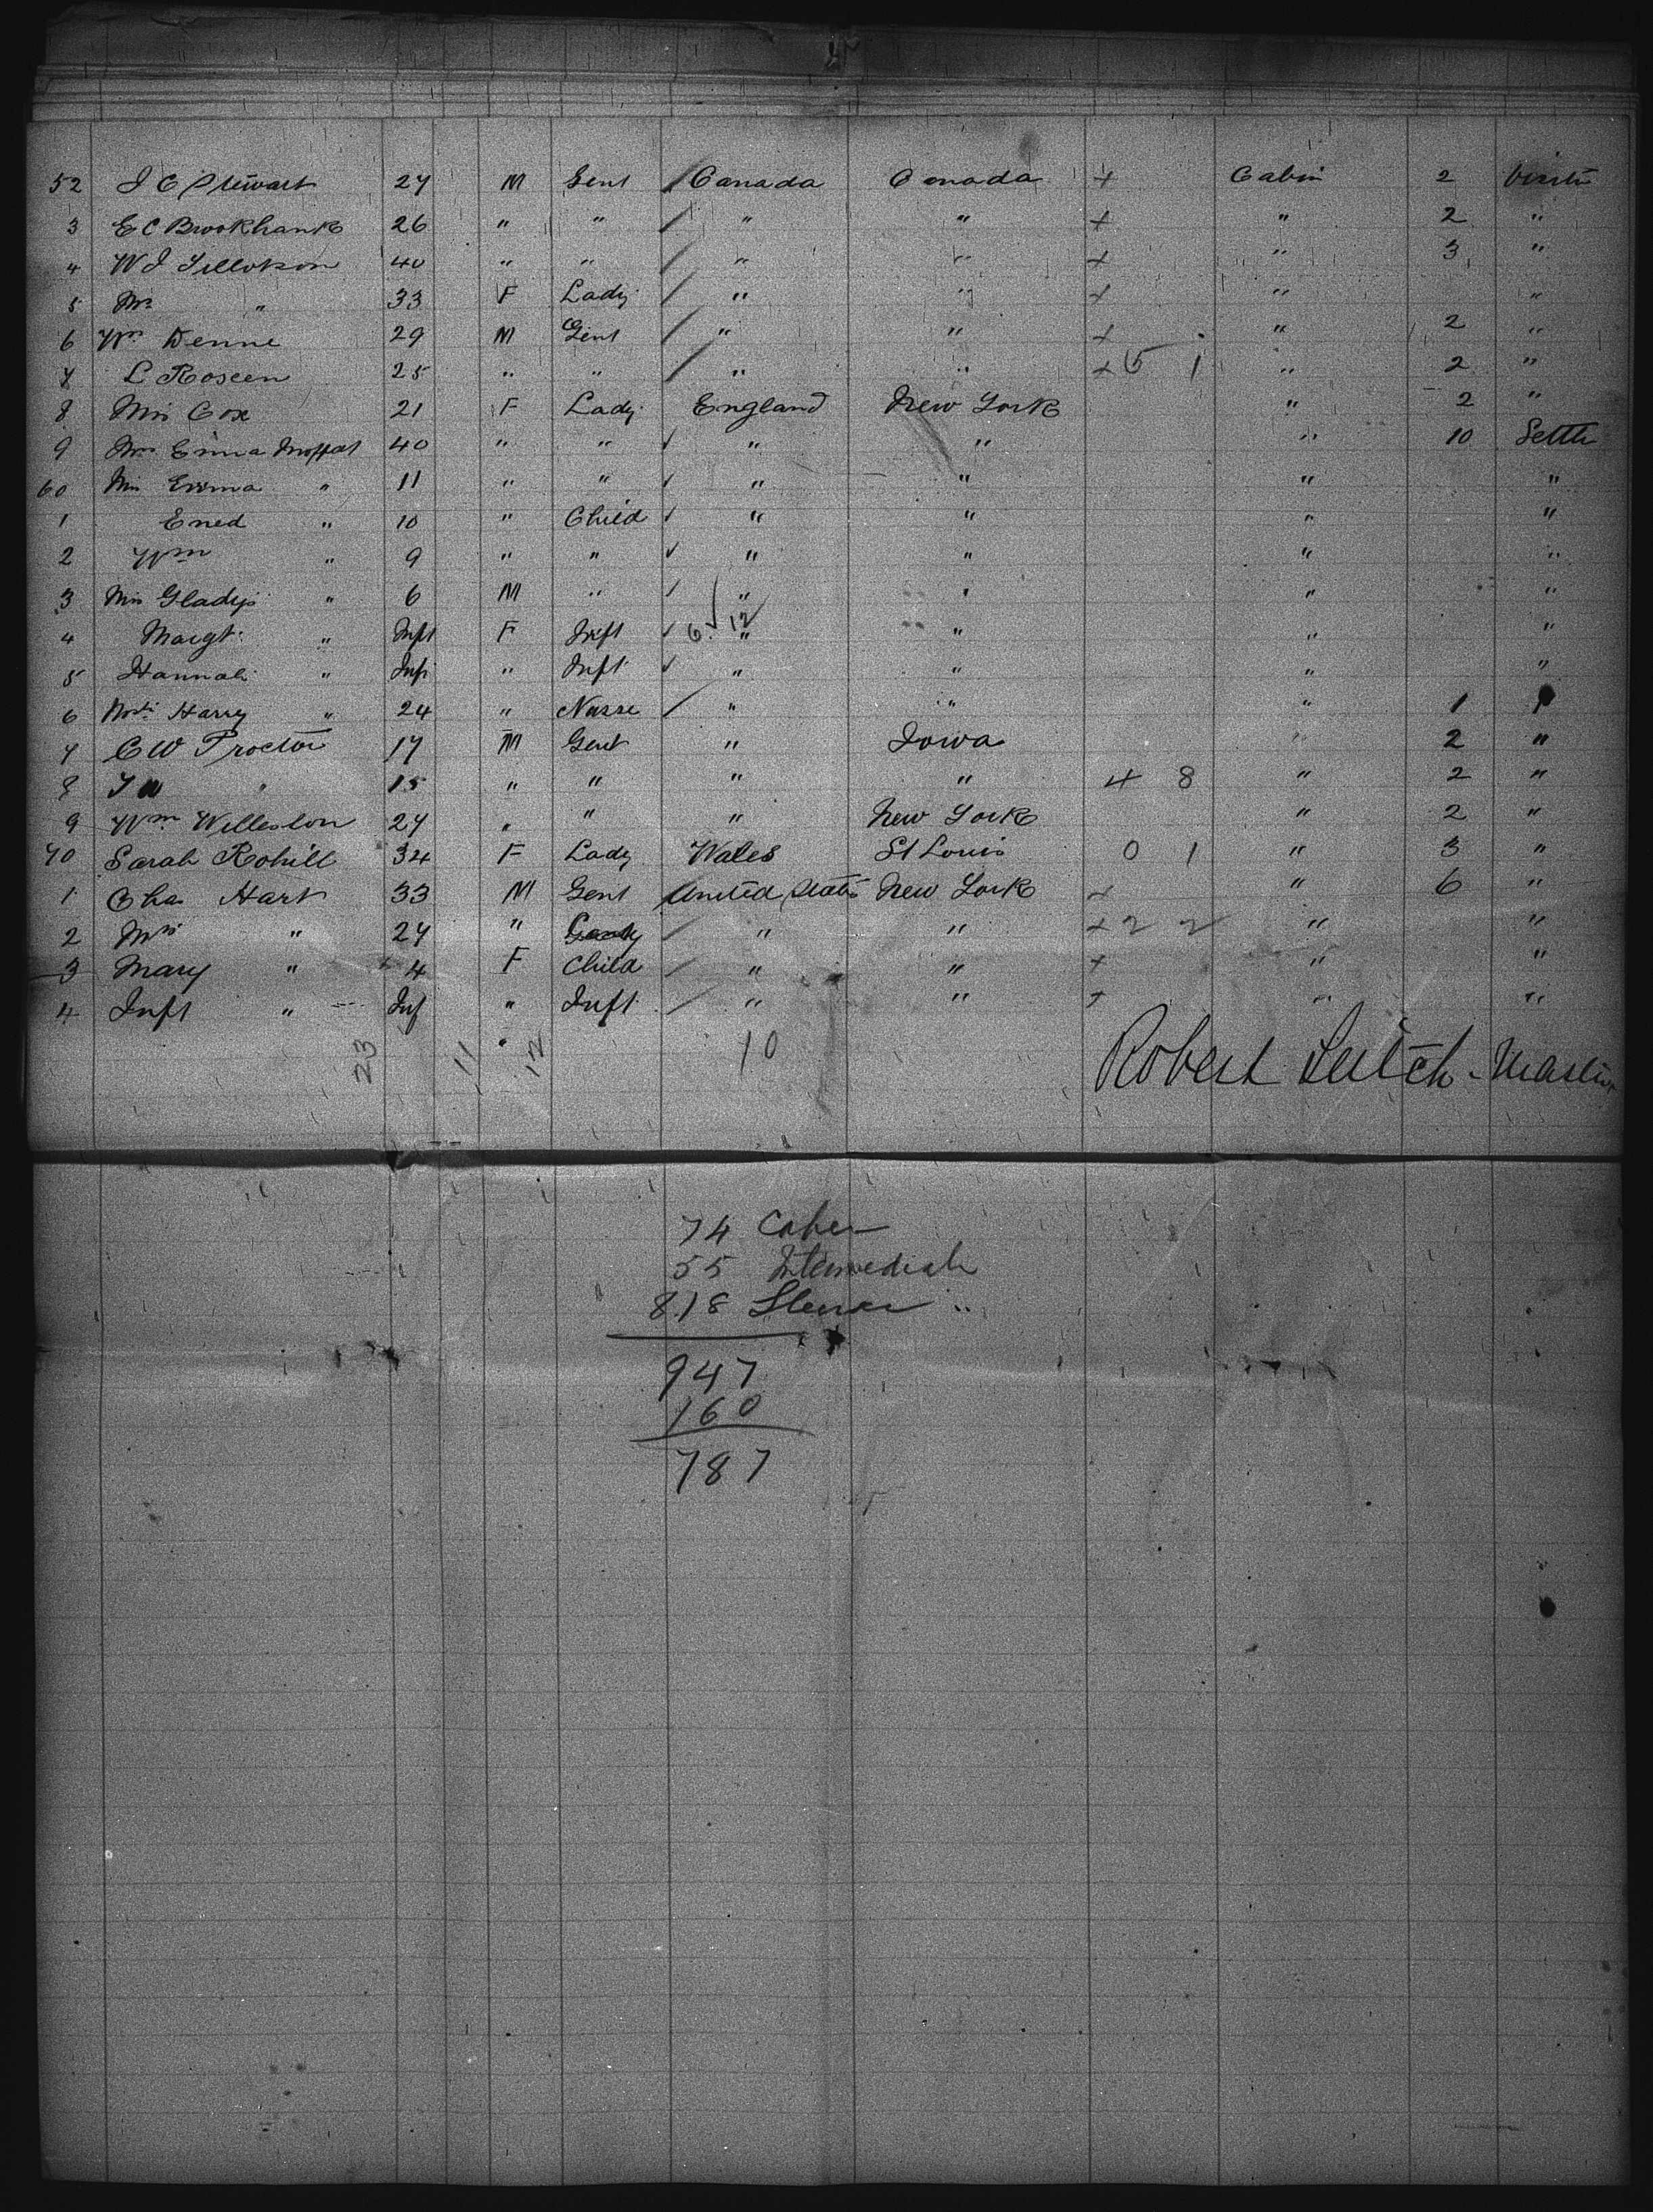 52 J C Stewart 27 M Gent Canada Canada + Cabin 2 Visiti
3 E C Brookhank 26 " " " " + " 2 "
4 W J 40 " " " " + " 3 "
5 Mrs " 33 F Lady " " + " "
6 Wm Denne 29 M Gent " " + " 2 "
7 L Roseen 25 " " " " + 5 1 " 2 "
8 Miss Cox 21 F Lady England New York " 2 "
9 Mrs Emma Moffat 40 " " " " " 10 Settle
60 Miss Emma " 11 " " " " " "
1 Ened " 10 " Child " " " "
2 Wm " 9 " " " " " "
3 Miss Gladys " 6 M " " " " "
4 Margt " Inft F Inft 6 12 " " " "
5 Hannah " Inf " Inft " " " "
6 Harry " 24 " Nurse " " " 1 "
7 C W Proctor 17 M Gent " Iowa " 2 "
8 " 15 " " " " 4 8 " 2 "
9 Wm Willeston 27 " " " New York " 2 "
70 Sarah Rohill 34 F Lady Wales St Louis 0 1 " 3 "
1 Chas Hart 33 M Gent United States New York + " 6 "
2 Mrs " 27 " " " + 2 2 " "
3 Mary " 4 F Child " " + " "
4 Inft " Inf " Inft " " + " "
23 11 12 10
Robert Leitch - Master
74 Cabin
55 Intermediate
818 Steerage "
947
160
787